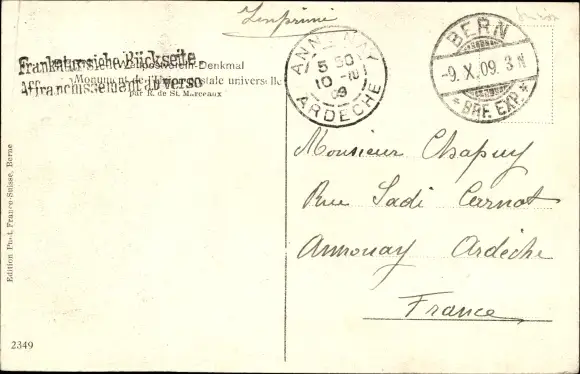 Imprimé
Frankatur siehe Rückseite
Weltpostverein-Denkmal
Monument de l'Union postale universelle
Affranchissement au verso
par R. de St. Marceaux
ANNONAY
5 50
10 -10
9
ARDÈCHE
BERN
-9.X.09. 3
* BRF. EXP. *
Monsieur Chapuy
Rue Sadi Carnot
Annonay Ardèche
France
Edition Phot. Franco-Suisse, Berne
2349